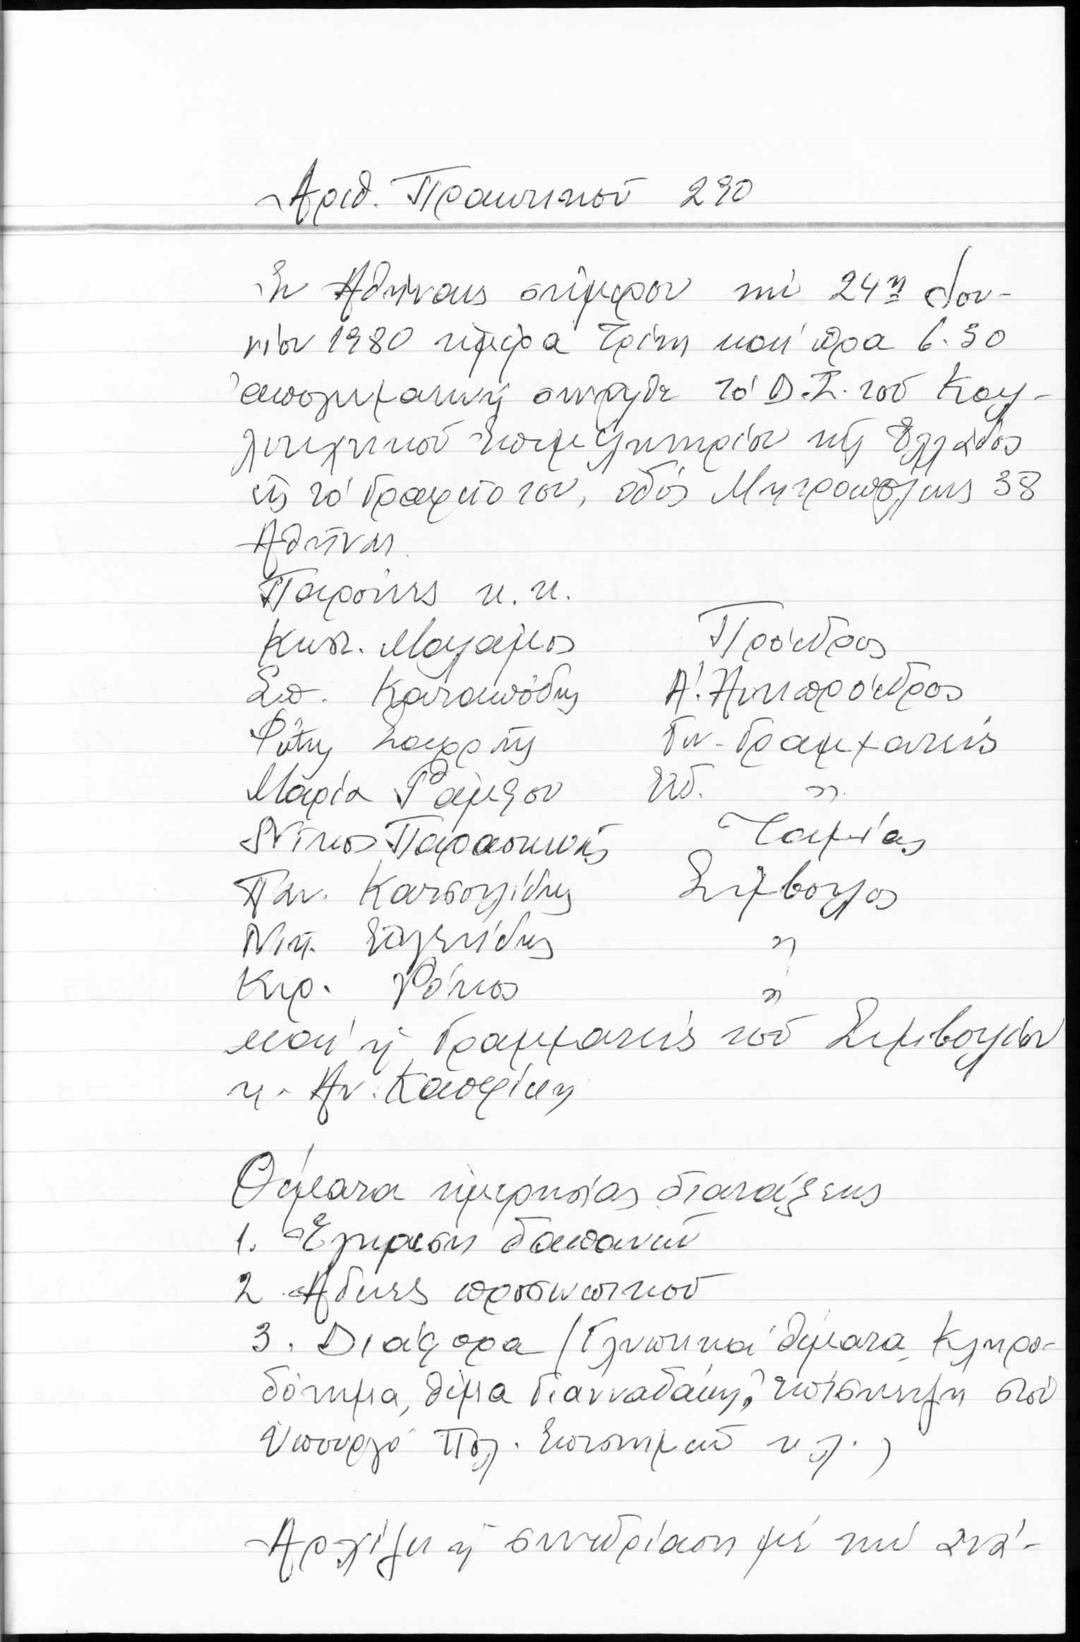 Ἀριθ. Πρακτικοῦ 290
Ἐν Ἀθήναις σήμερον τήν 24η Ἰου-
νίου 1980 ἡμέρα Τρίτη καί ὥρα 6.30
ἀπογευματινή συνῆλθε τό Δ.Σ. τοῦ Καλ-
λιτεχνικοῦ Ἐπιμελητηρίου τῆς Ἑλλάδος
εἰς τό Γραφεῖο του, ὁδός Μητροπόλεως 38
Ἀθῆναι.
Παρόντες κ.κ.
Κωστ. Μαλάμος Πρόεδρος
Σπ. Καταπόδης Α΄. Ἀντιπρόεδρος
Φώτης Σαρρῆς Γεν. Γραμματεύς
Μαρία Ράμφου Εἰδ. "
Ντῖνος Παρασκευᾶς Ταμίας
Παν. Κατσουλίδης Σύμβουλος
Μιχ. "
Κυρ. Ρόκος "
καί ἡ Γραμματεύς τοῦ Συμβουλίου
κ. Ἀν. Καπρίνη
Θέματα ἡμερησίας διατάξεως
1. Ἔγκριση δαπανῶν
2 Ἄδειες προσωπικοῦ
3. Διάφορα (Γλυπτικά θέματα, Κληρο-
δότημα, θέμα Γιανναδάκη, ἐπίσκεψη στόν
Ὑπουργό Πολ. Ἐπιστημῶν κλ.)
Ἀρχίζει ἡ συνεδρίαση μέ τήν ἀνά-